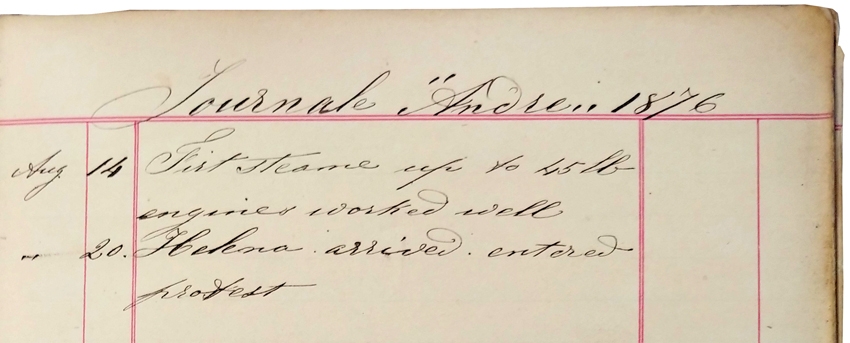 Journale "Andre„ 1876
Aug 14 First steame up to 45 lb
engines worked well
„ 20. Helena . arrived . entered
protest